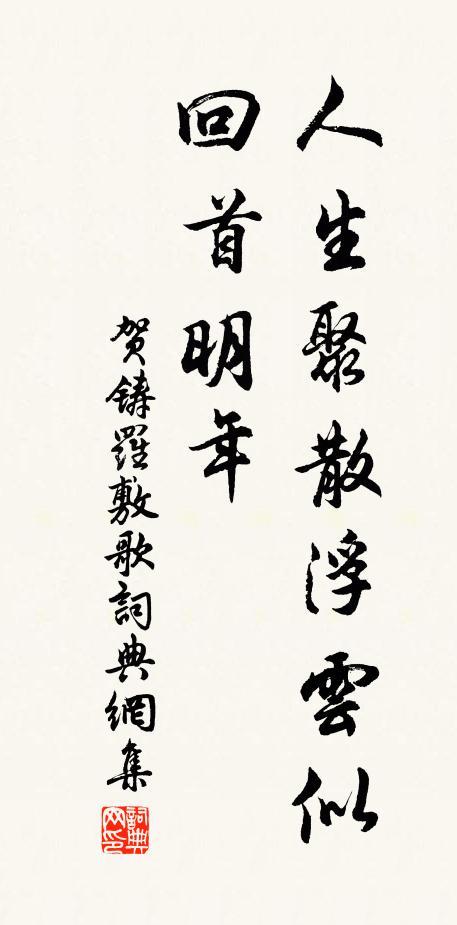 人生聚散浮雲似
回首明年
贺鑄羅敷歌詞典網集
詞典网印